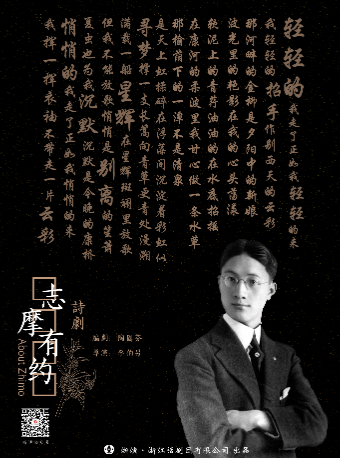 轻轻的我走了正如我轻轻的来
我轻轻的招手作别西天的云彩
那河畔的金柳是夕阳中的新娘
波光里的艳影在我的心头荡漾
软泥上的青荇油油的在水底招摇
在康河的柔波里我甘心做一条水草
那榆荫下的一潭不是清泉
是天上虹揉碎在浮藻间沉淀着彩虹似
寻梦撑一支长篙向青草更青处漫溯
满载一船星辉在星辉斑斓里放歌
但我不能放歌悄悄是别离的笙箫
夏虫也为我沉默沉默是今晚的康桥
悄悄的我走了正如我悄悄的来
我挥一挥衣袖不带走一片云彩
志摩有约
About Zhimo
詩劇
编剧:
导演: 李伯男
浙江话剧团有限公司 出品